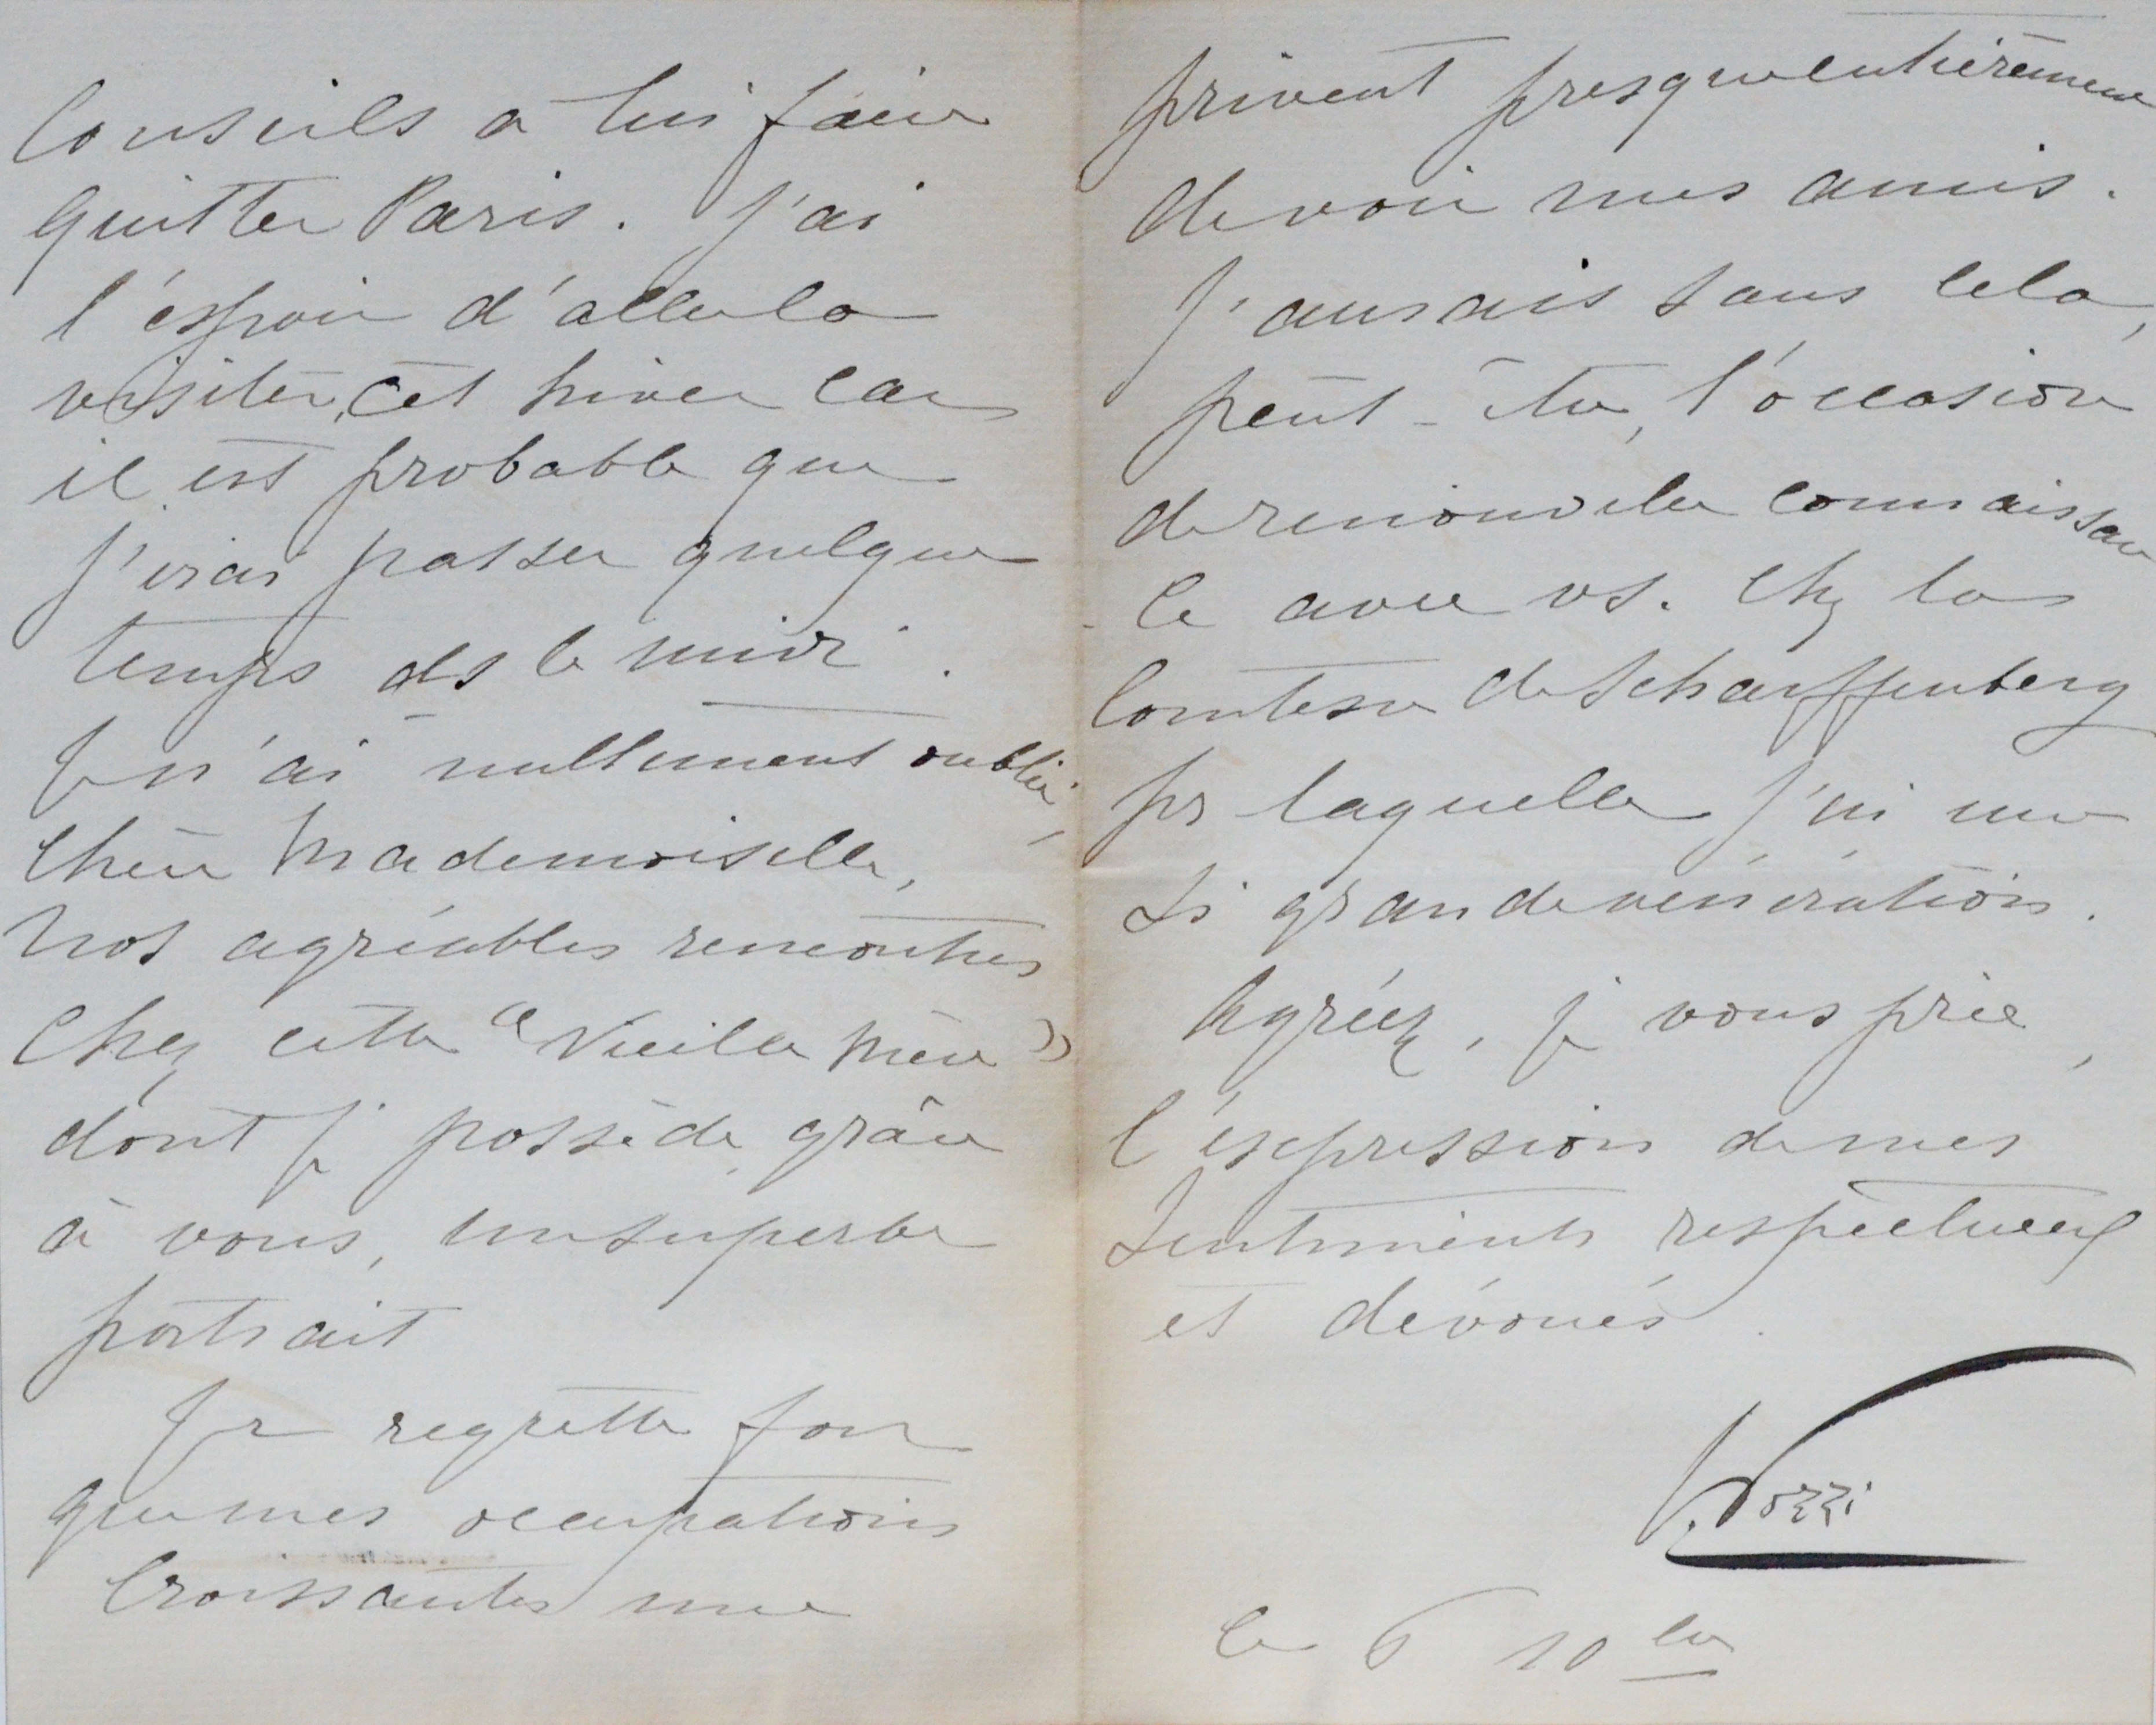 Conseils à lui faire
quitter Paris. J'ai
l'espoir d'aller la
visiter, cet hiver car
il est probable que
j'irai passer quelque
temps ds le midi.
Je n'ai nullement oublié,
chère Mademoiselle,
nos agréables rencontres
chez cette "Vieille Mère"
dont je possède, grâce
à vous, un superbe
portrait
Je regrette fort
que mes occupations
croissantes me
privent presqu'entièrement
de voir mes amis.
J'aurais sans cela,
peut-être, l'occasion
de renouveler connaissan
-ce avec vs. chez la
Comtesse de Schauffenberg
pr laquelle j'ai une
si grande vénération.
Agréez, je vous prie,
l'expression de mes
sentiments respectueux
et dévoués.
S. Pozzi
le 6 10bre